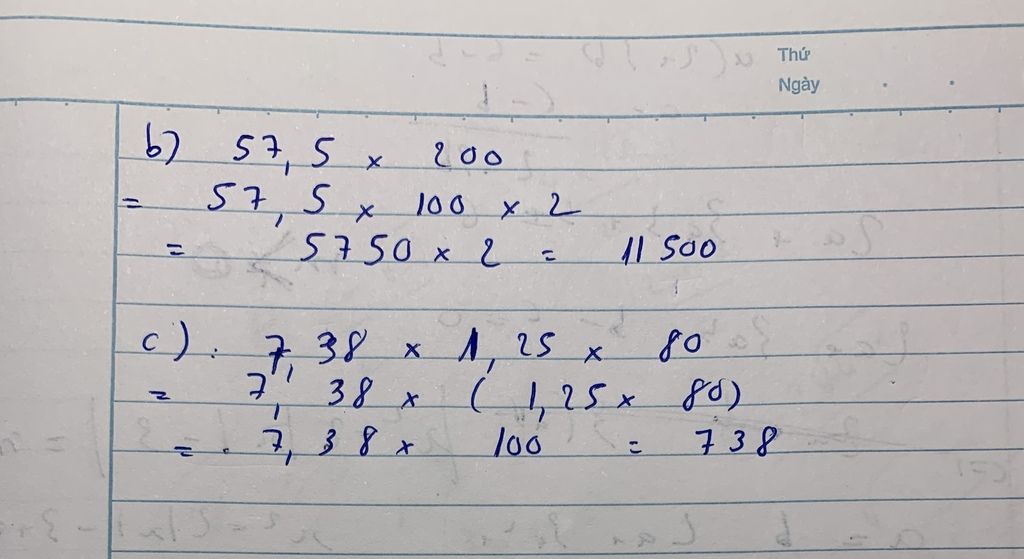 Thứ
Ngày
b) 57,5 × 200
= 57,5 × 100 × 2
= 5750 × 2 = 11500
c). 7,38 × 1,25 × 80
= 7,38 × (1,25 × 80)
= 7,38 × 100 = 738